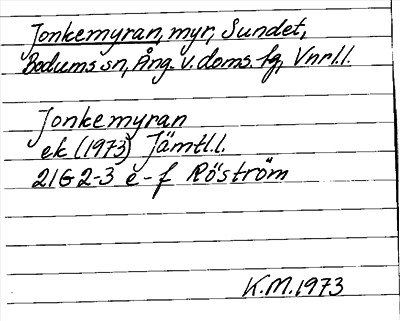 Jonkemyran, myr, Sundet,
Bodums sn, Ång. v. doms. fg, Vnrl.l.
Jonkemyran
ek (1973) Jämtl.l.
21G 2-3 e-f Röström
K.M. 1973